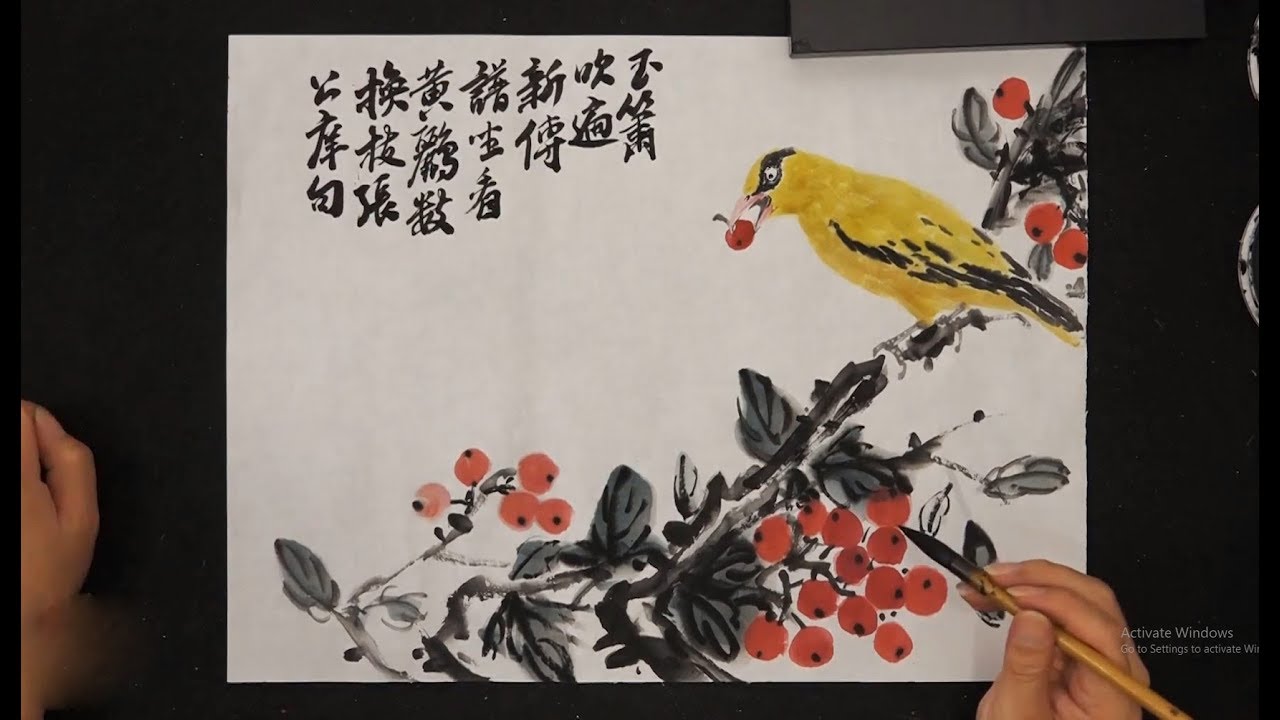 玉簫
吹遍
新傳
譜坐看
黃鸝數
換枝張
公庠句
Activate Windows
Go to Settings to activate